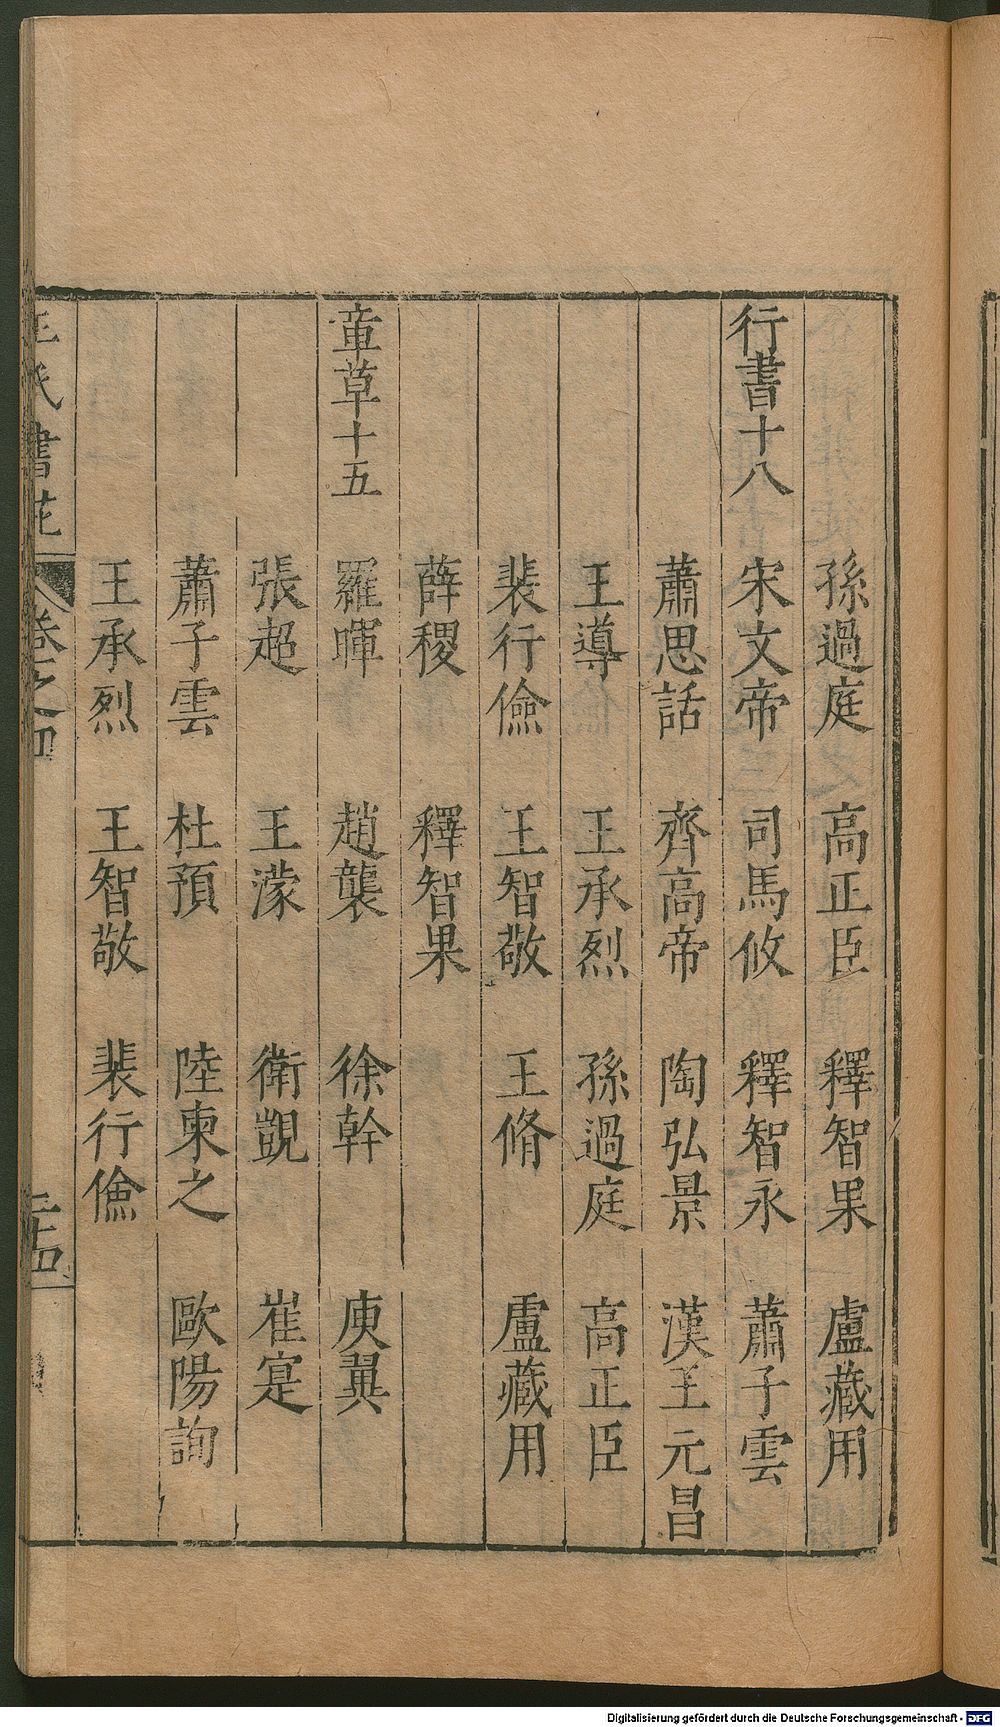 孫過庭 高正臣 釋智果 盧藏用
行書十八 宋文帝 司馬攸 釋智永 蕭子雲
蕭思話 齊高帝 陶弘景 漢王元昌
王導 王承烈 孫過庭 高正臣
裴行儉 王智敬 王脩 盧藏用
薛稷 釋智果
章草十五 羅暉 趙襲 徐幹 庾翼
張超 王濛 衛覬 崔寔
蕭子雲 杜預 陸柬之 歐陽詢
王承烈 王智敬 裴行儉
王氏書苑 卷之四 二十四
Digitalisierung gefördert durch die Deutsche Forschungsgemeinschaft - DFG